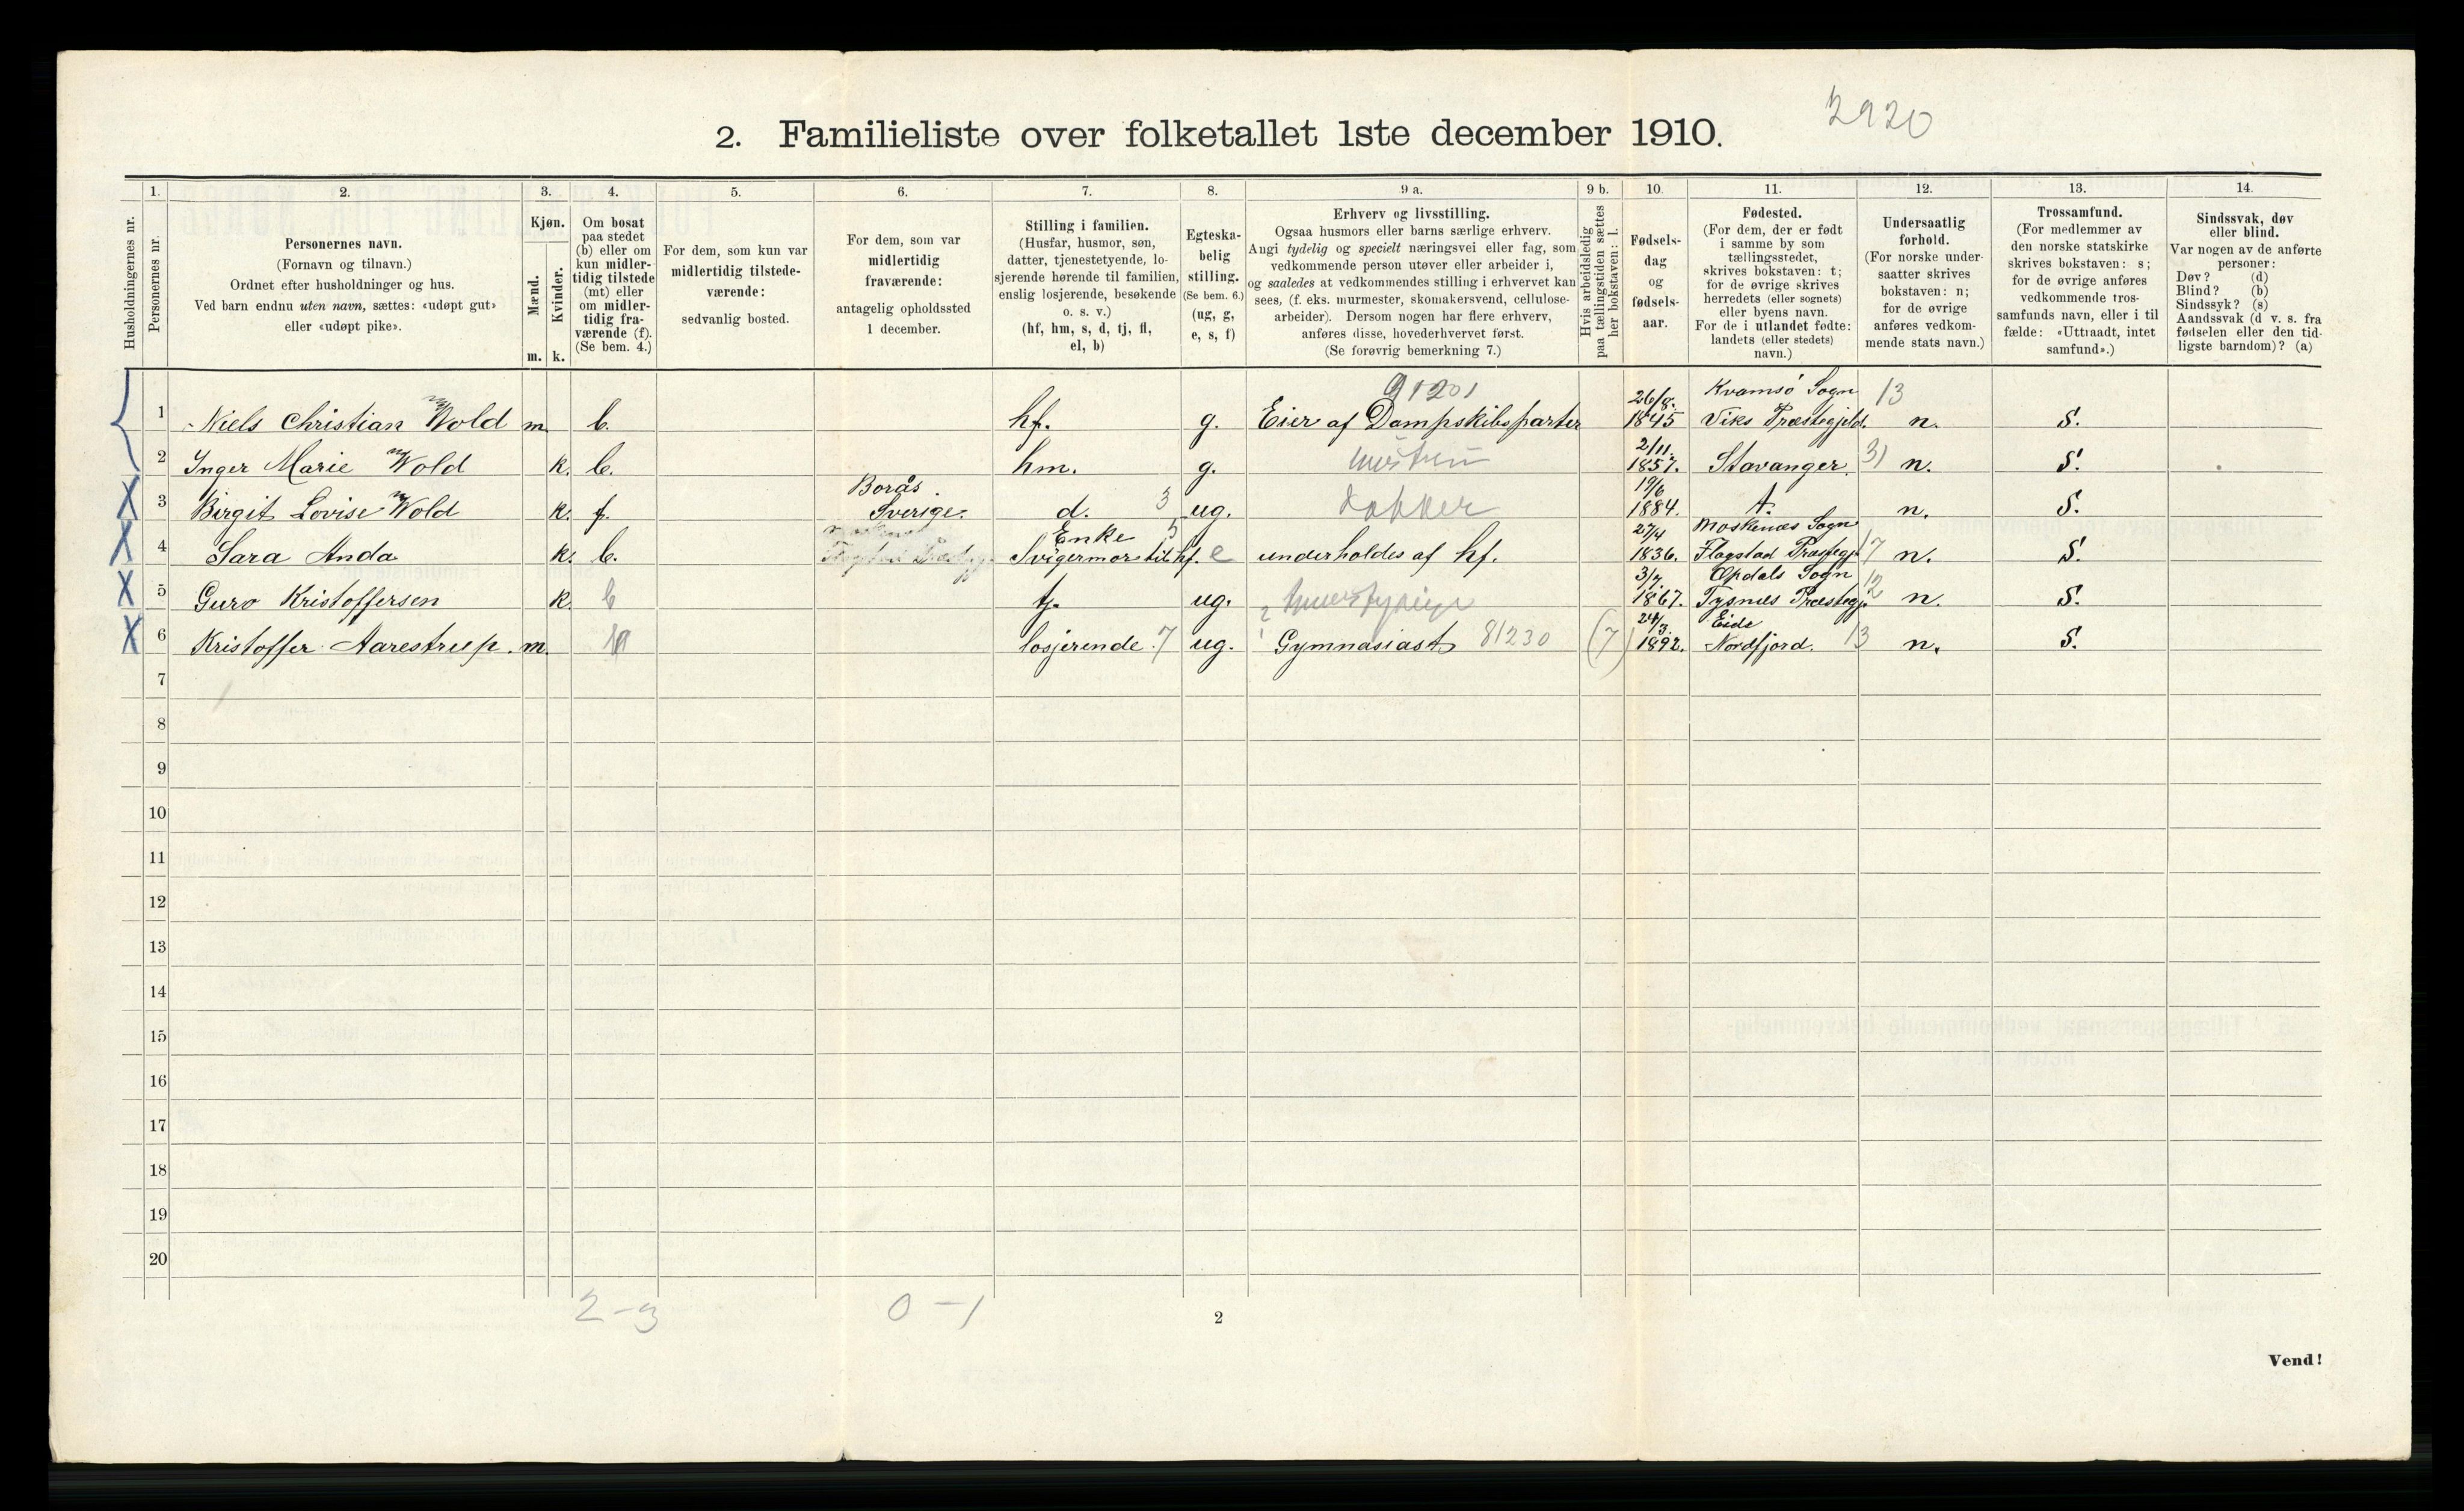 2920
2. Familieliste over folketallet 1ste december 1910.
Husholdningernes nr.
1. Personernes nr.
2. Personernes navn.
(Fornavn og tilnavn.)
Ordnet efter husholdninger og hus.
Ved barn endnu uten navn, sættes: «udøpt gut»
eller «udøpt pike».
3. Kjøn.
Mænd. m.
Kvinder. k.
4. Om bosat
paa stedet
(b) eller om
kun midler-
tidig tilstede
(mt) eller
om midler-
tidig fra-
værende (f).
(Se bem. 4.)
5. For dem, som kun var
midlertidig tilstede-
værende:
sedvanlig bosted.
6. For dem, som var
midlertidig
fraværende:
antagelig opholdssted
1 december.
7. Stilling i familien.
(Husfar, husmor, søn,
datter, tjenestetyende, lo-
sjerende hørende til familien,
enslig losjerende, besøkende
o. s. v.)
(hf, hm, s, d, tj, fl,
el, b)
8. Egteska-
belig
stilling.
(Se bem. 6.)
(ug, g,
e, s, f)
9 a. Erhverv og livsstilling.
Ogsaa husmors eller barns særlige erhverv.
Angi tydelig og specielt næringsvei eller fag, som
vedkommende person utøver eller arbeider i,
og saaledes at vedkommendes stilling i erhvervet kan
sees, (f. eks. murmester, skomakersvend, cellulose-
arbeider). Dersom nogen har flere erhverv,
anføres disse, hovederhvervet først.
(Se forøvrig bemerkning 7.)
9 b. Hvis arbeidsledig
paa tællingstiden sættes
her bokstaven: l.
10. Fødsels-
dag
og
fødsels-
aar.
11. Fødested.
(For dem, der er født
i samme by som
tællingsstedet,
skrives bokstaven: t;
for de øvrige skrives
herredets (eller sognets)
eller byens navn.
For de i utlandet fødte:
landets (eller stedets)
navn.)
12. Undersaatlig
forhold.
(For norske under-
saatter skrives
bokstaven: n;
for de øvrige
anføres vedkom-
mende stats navn.)
13. Trossamfund.
(For medlemmer av
den norske statskirke
skrives bokstaven: s;
for de øvrige anføres
vedkommende tros-
samfunds navn, eller i til
fælde: «Uttraadt, intet
samfund».)
14. Sindssvak, døv
eller blind.
Var nogen av de anførte
personer:
Døv? (d)
Blind? (b)
Sindssyk? (s)
Aandssvak (d v. s. fra
fødselen eller den tid-
ligste barndom)? (a)
91201 26/8. Kvamsö Sogn 13
1 Niels Christian Wold m. b. hf. g. Eier af Dampskibsparter 1845 Viks Præstegjeld. n. S.
2/11.
2 Inger Marie Wold k. b. hm. g. hustru 1857. Stavanger. 31 n. S.
Borås. 19/6
3 Birgit Lovise Wold k. f. Sverige. d. 3 ug. 1884. t. n. S.
Enke 5 27/4 Moskenæs Sogn
4 Sara Anda k. b. Svigermor til hf. e underholdes af hf. 1836. Flagstad Præstegj. 17 n. S.
3/7. Opdals Sogn 12
5 Guro Kristoffersen k. b tj. ug. 1867. Tysnes Præstegj. n. S.
24/3. Eide
6 Kristoffer Aarestrup. m. losjerende. 7 ug. Gymnasiast 81230 (7) 1892. Nordfjord. 13 n. S.
7
8
9
10
11
12
13
14
15
16
17
18
19
20
2-3 0-1
2
Vend!